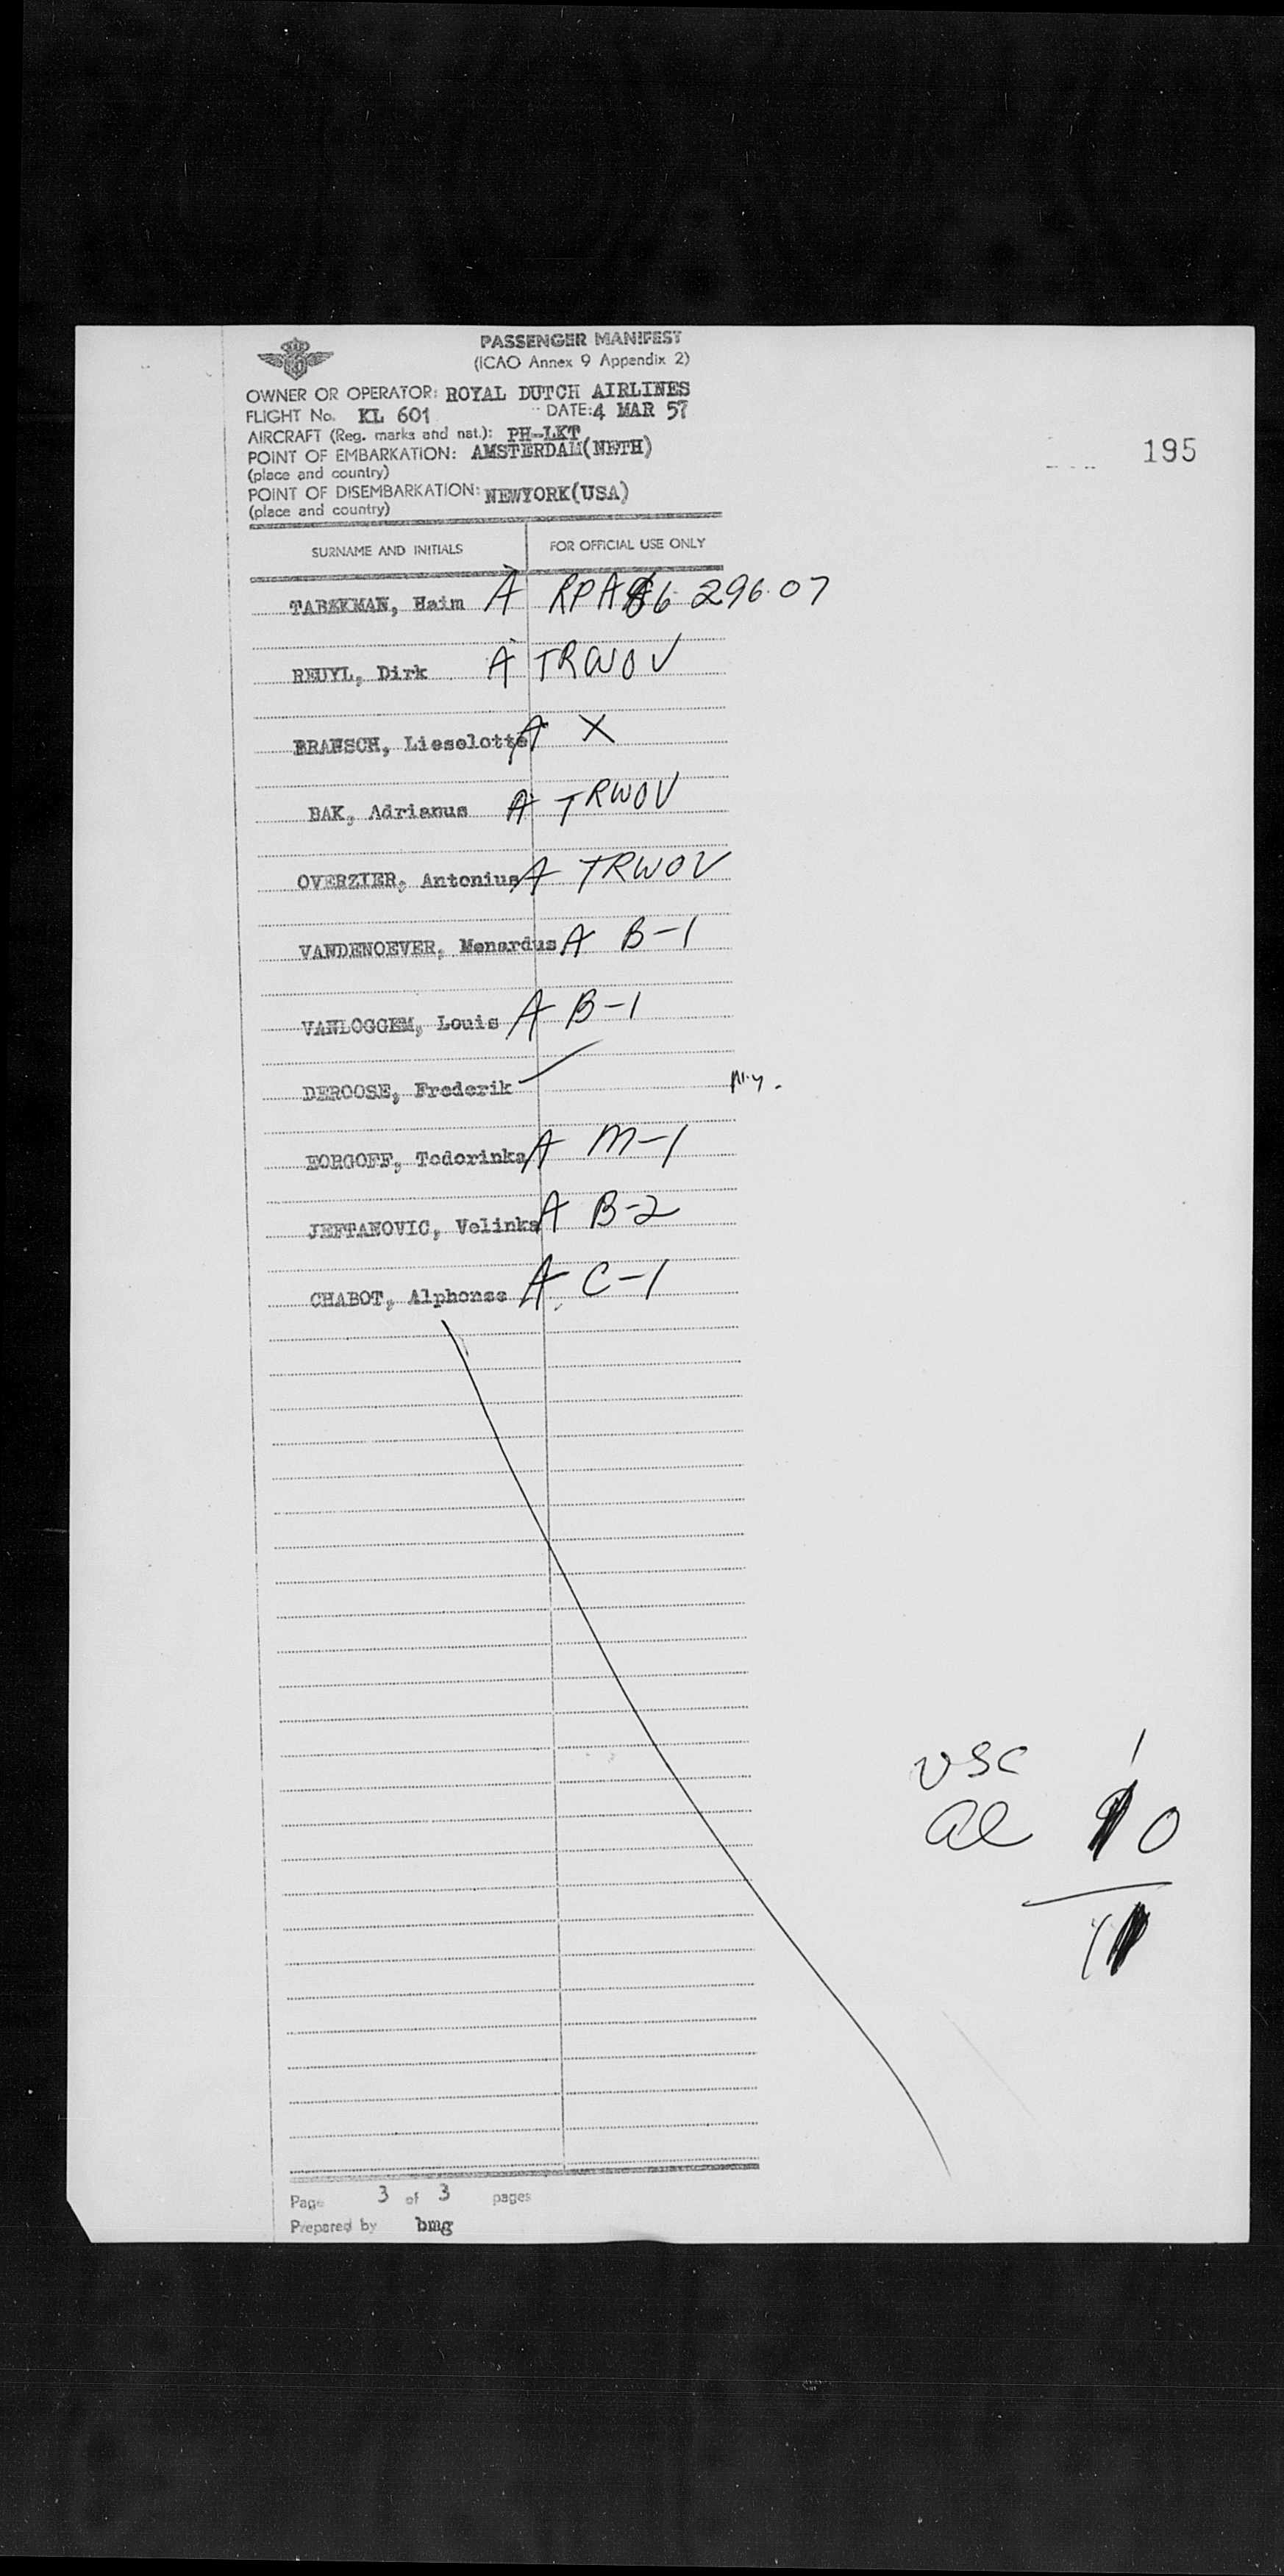 PASSENGER MANIFEST
(ICAO Annex 9 Appendix 2)
OWNER OR OPERATOR: ROYAL DUTCH AIRLINES
FLIGHT No. KL 601 DATE: 4 MAR 57
AIRCRAFT (Reg. marks and nat.): PH-LKT
POINT OF EMBARKATION: AMSTERDAM(NETH)
(place and country)
195
POINT OF DISEMBARKATION: NEWYORK(USA)
(place and country)
SURNAME AND INITIALS FOR OFFICIAL USE ONLY
TABEKMAN, Haim A 296.07
REUYL, Dirk A TRWOV
BRANSCH, Lieselotte A X
BAK, Adrianus A TRWOV
OVERZIER, Antonius A TRWOV
VANDENOEVER, Menardus A B-1
VANLOGGEM, Louis A B-1
DEROOSE, Frederik
Todorinka A M-1
JEFTANOVIC, Velinka A B-2
CHABOT, Alphonse A C-1
USC 1
al 10
Page 3 of 3 pages
Prepared by bmg